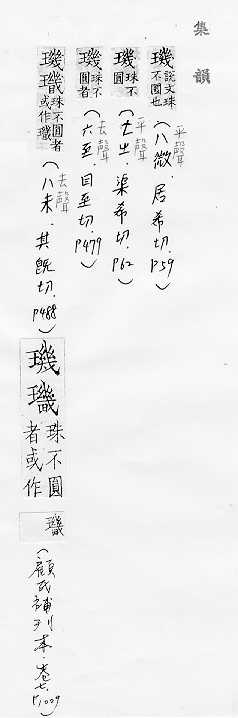 集韻
璣說文珠不圓也(平聲八微.居希切.P59)
璣珠不圓(平聲.渠希切.P62)
璣珠不圓者(去聲六至.其至切.P479)
璣璣珠不圓者或作璣(去聲八未.其旣切.P488)
璣璣珠不圓者或作
璣
(顧氏補刊本.卷七.P.1009)